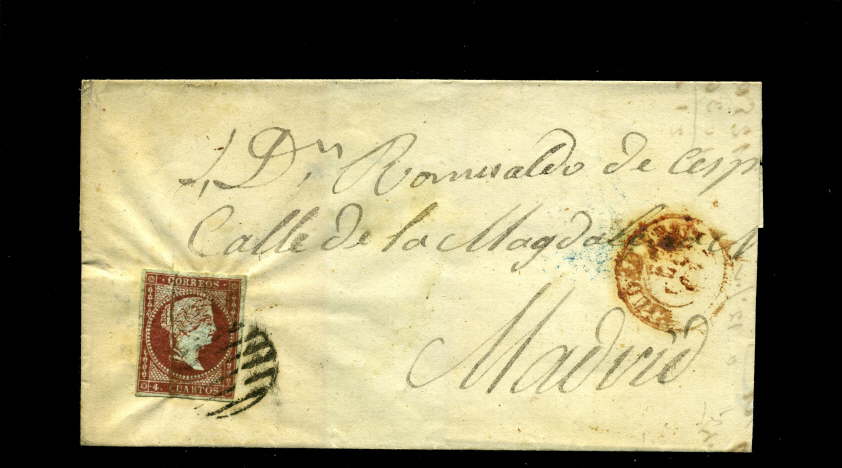 Dⁿ Romualdo de Cesp
Calle de la Magdalena
Madrid
CORREOS
4 CUARTOS